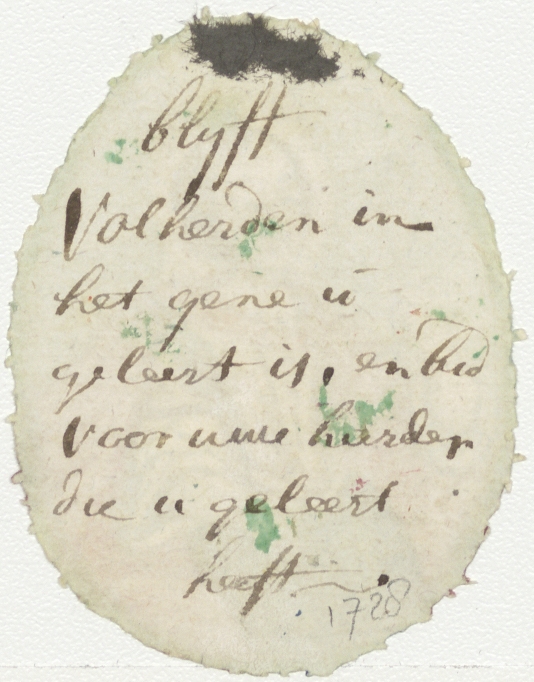 blyft
Volherden in
het gene ú
geleert is, en bid
voor uwe harder
die ú geleert
heeft
1728